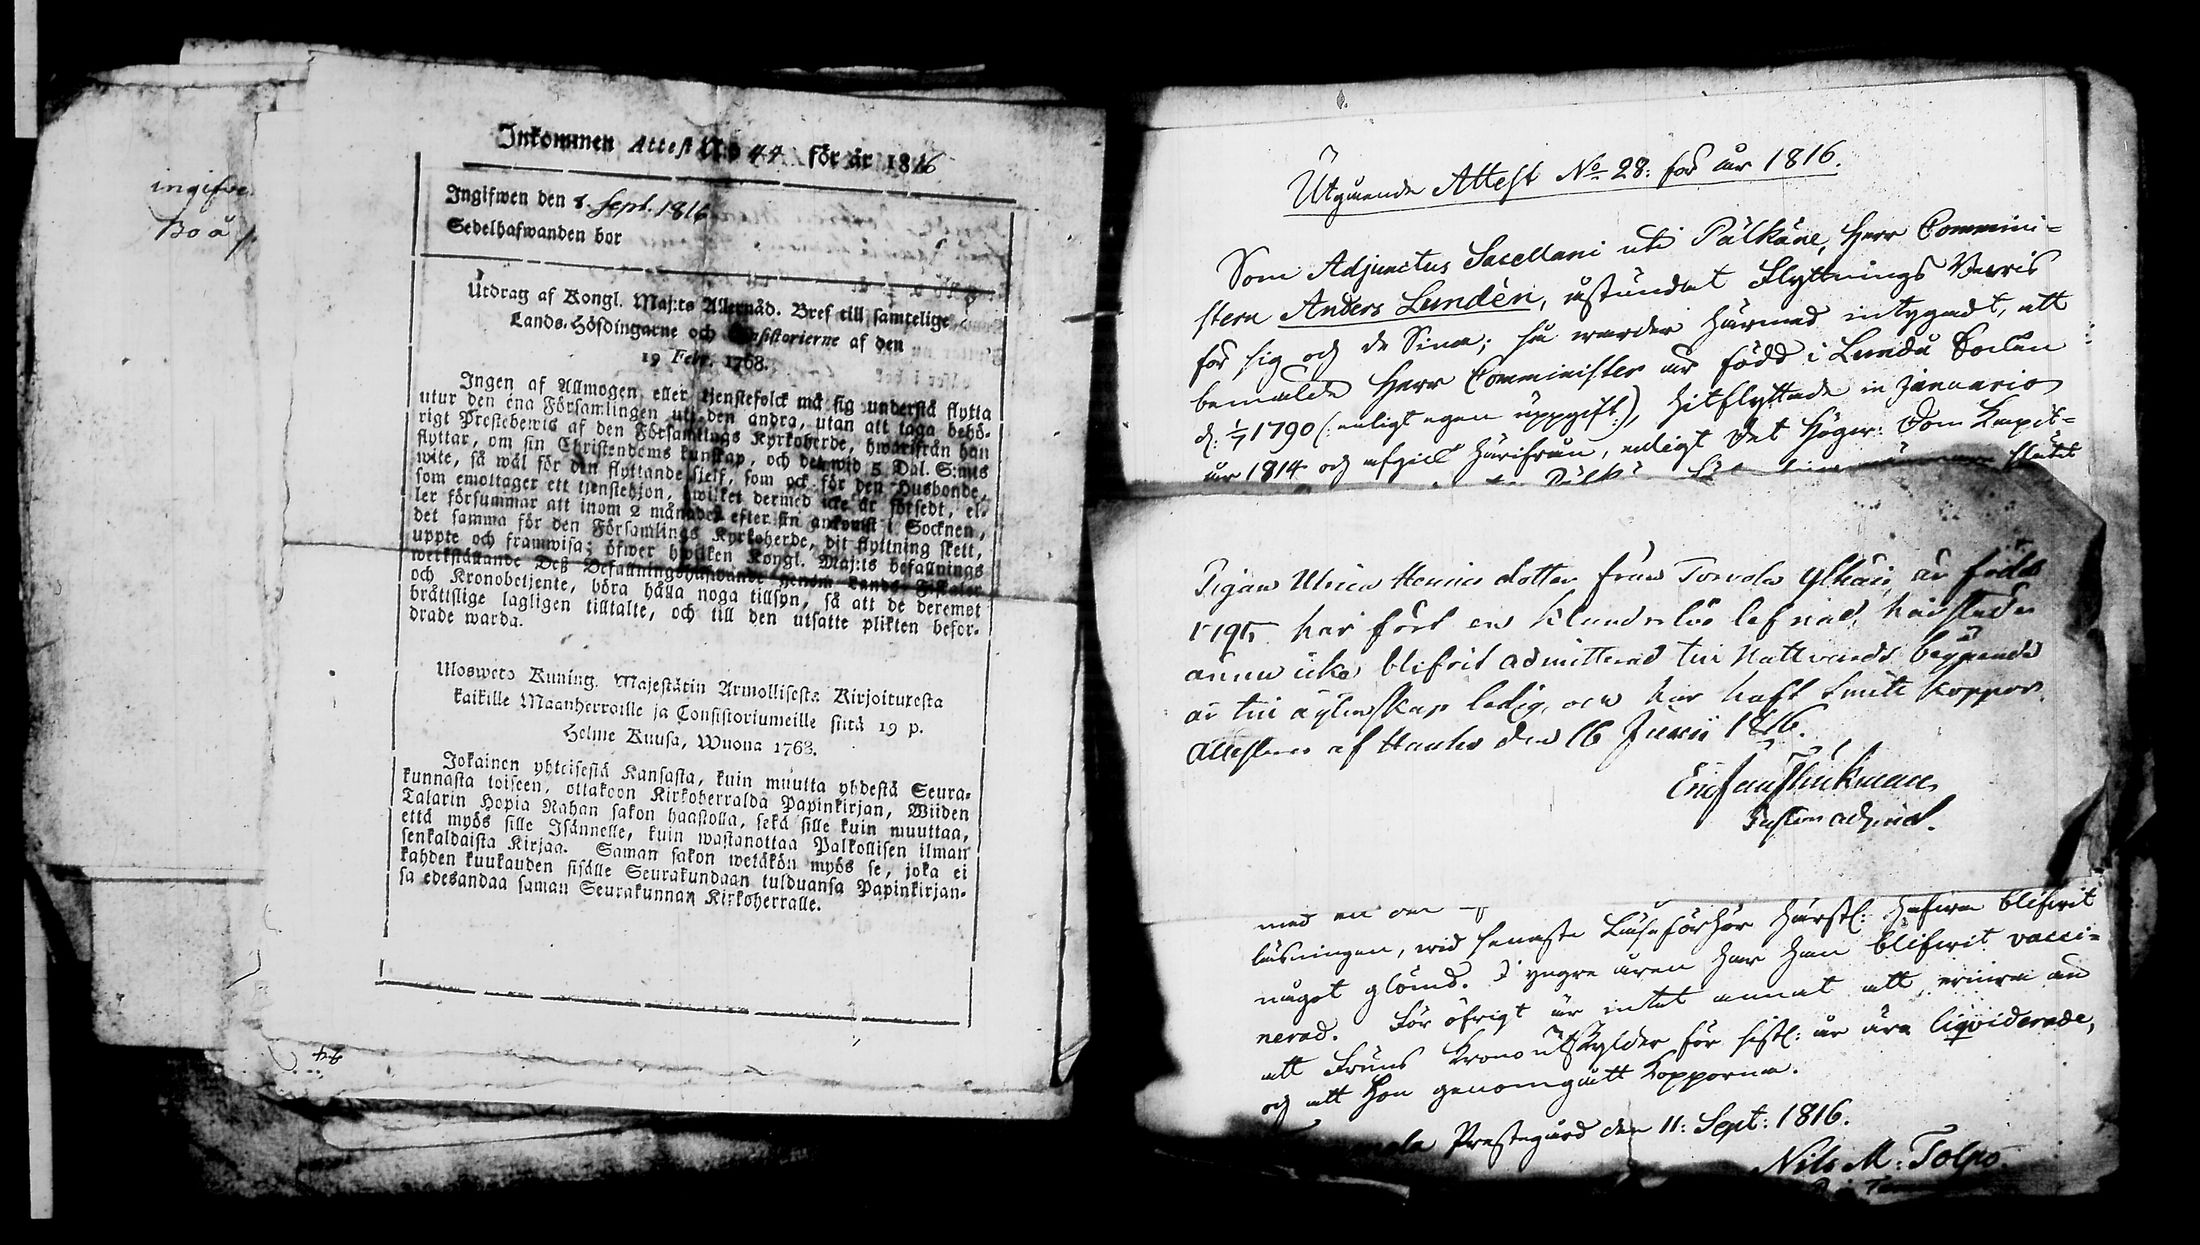 ingifve
Bo å
Inkommen Attest N:o 44 för år 1816
Ingifwen den 8 Sept. 1816
Sedelhafwanden bor
Utdrag af Kongl. Maj:ts Allernåd. Bref till samtelige
Lands-Höfdingarne och Consistorierne af den
19 Febr. 1768.
Ingen af Allmogen eller tjenstefolck må sig understå flytta
utur den ena Församlingen uti den andra, utan att taga behö-
rigt Prestebewis af den Församlings Kyrkoherde, hwarifrån han
flyttar, om sin Christendoms kunskap, och det wid 5 Dal. S:mts
wite, så wäl för den flyttande sjelf, som ock för den Husbonde,
som emottager ett tjenstehjon, hwilket dermed icke är försedt, el-
ler försummar att inom 2 månader efter sin ankomst i Socknen,
det samma för den Församlings Kyrkoherde, dit flyttning skett,
uppte och framwisa; öfwer hwilken Kongl. Maj:ts befallnings
werkställande Deß Befallningshafwande genom Lands-Fiskaler
och Kronobetjente, böra hålla noga tillsyn, så att de deremot
bråttslige lagligen tilltalte, och till den utsatte plikten befor-
drade warda.
Ulosweto Kuning. Majestätin Armollisesta Kirjoituxesta
kaikille Maanherroille ja Consistoriumeille siitä 19 p.
Helme Kuusa, Wuona 1768.
Jokainen yhteisestä Kansasta, kuin muutta yhdestä Seura-
kunnasta toiseen, ottakoon Kirkoherralda Papinkirjan, Wiiden
Talarin Hopia Rahan sakon haastolla, sekä sille kuin muuttaa,
että myös sille Isännelle, kuin wastanottaa Palkollisen ilman
senkaldaista Kirjaa. Saman sakon wetäkön myös se, joka ei
kahden kuukauden sisälle Seurakundaan tulduansa Papinkirjan-
sa edesandaa saman Seurakunnan Kirkoherralle.
Utgående Attest No 28: för år 1816.
Som Adjunctus Sacellani uti Pälkäne, Herr Commini-
stern Anders Lundén, åstundat Flyttnings Bewis
för sig och de Sina; så warder härmed intygadt, att
bemälde Herr Comminister är född i Lundå Socken
d: 1/7 1790 (: enligt egen uppgift:), hitflyttade in Januario
år 1814 och afgick härifrån, enligt det Högw: Dom Kapit-
Pigan Ulrica Henrics dotter från Torvola Ylhäis, är född
1795 har fört en klanderlös lefnad, härstädes
ännu icke blifvit admitterad till Nattvards begående
är till ägtenskap ledig, och har haft Smitt koppor
attesteras af Hauho den 16 Junii 1816.
Past: adjunct.
med en
läsningen, wid senaste Läseförhör härst: hafwa blifwit
något glömd. I yngre åren har han blifwit vacci-
nerad. För öfrigt är intet annat att erinra än
att Fruns Krono Utskylder för sistl: år äro liqviderade,
och att hon genomgått kopporna.
Prestegård den 11: Sept: 1816.
Nils M: Tolpo.